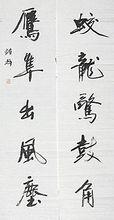 蛟龍驚鼓角
鷹隼出風塵